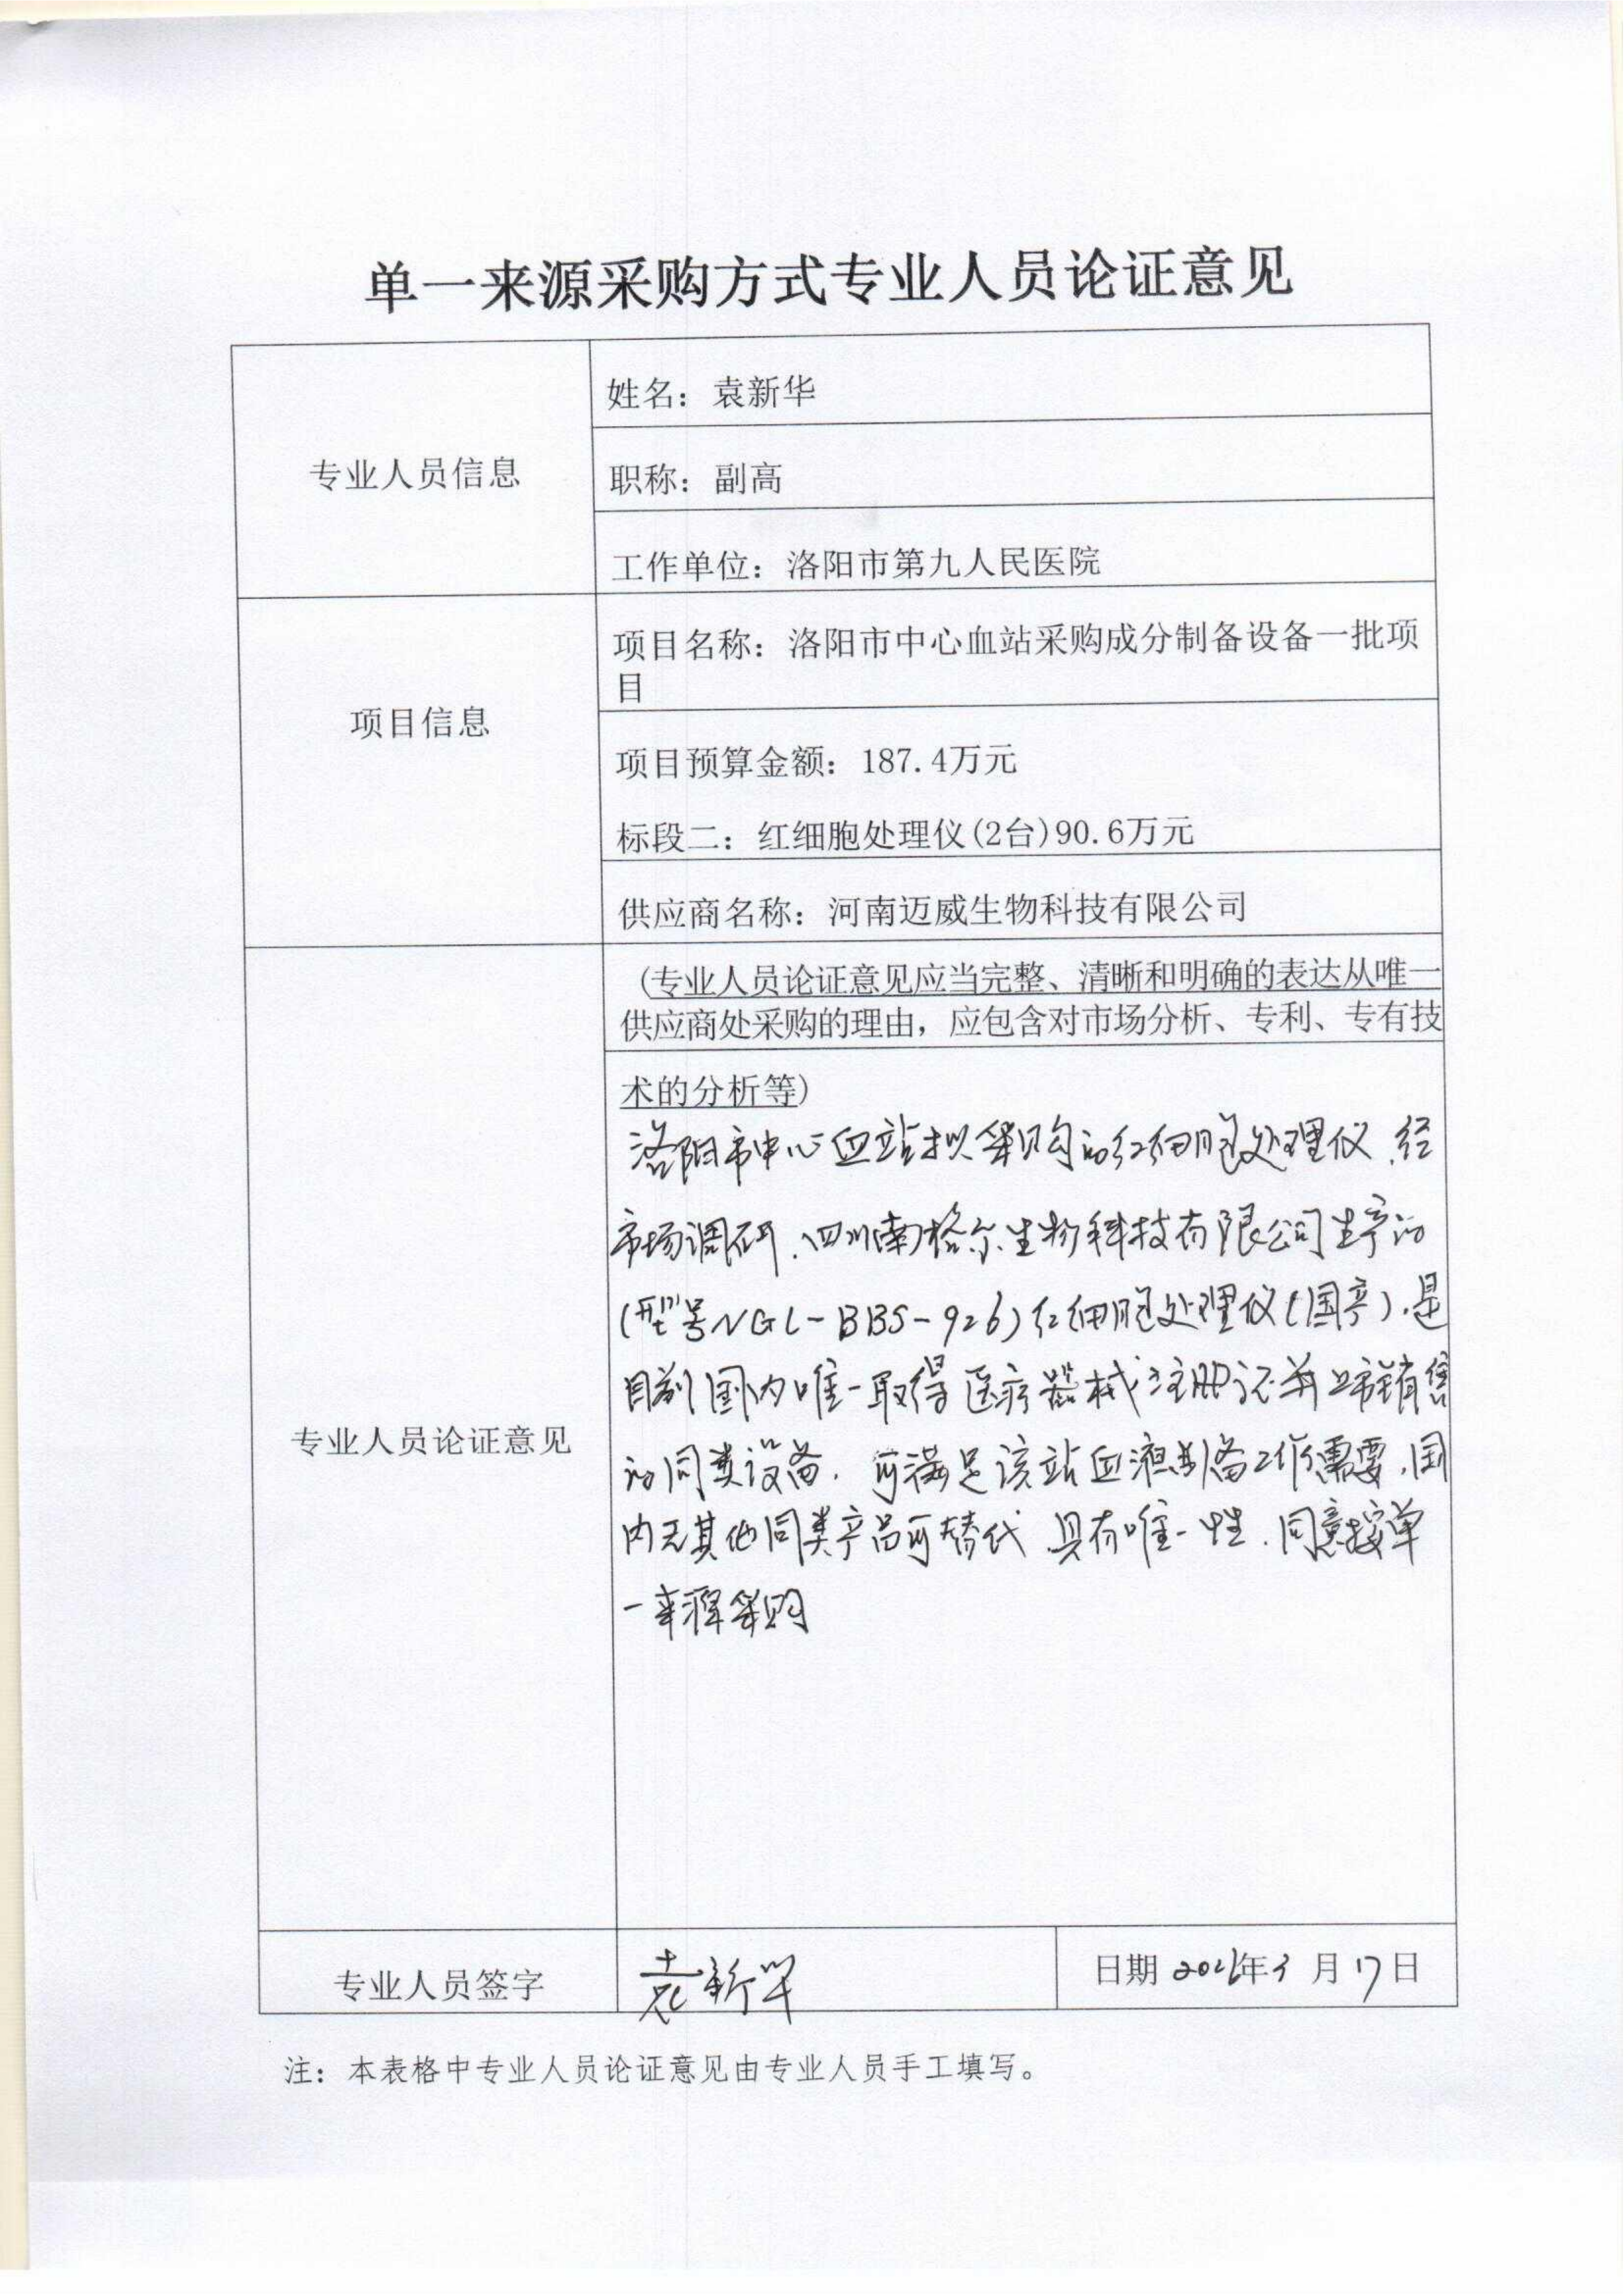 单一来源采购方式专业人员论证意见
专业人员信息
姓名：袁新华
职称：副高
工作单位：洛阳市第九人民医院
项目信息
项目名称：洛阳市中心血站采购成分制备设备一批项
目
项目预算金额：187.4万元
标段二：红细胞处理仪(2台)90.6万元
供应商名称：河南迈威生物科技有限公司
专业人员论证意见
(专业人员论证意见应当完整、清晰和明确的表达从唯一
供应商处采购的理由，应包含对市场分析、专利、专有技
术的分析等)
洛阳市中心血站拟采购的红细胞处理仪，经
市场调研，四川南格尔生物科技有限公司生产的
(型号NGL-BBS-926)红细胞处理仪(国产)，是
目前国内唯一取得医疗器械注册证并上市销售
的同类设备，可满足该站血液制备工作需要，国
内无其他同类产品可替代，具有唯一性，同意按单
一来源采购
专业人员签字
袁新华
日期 年3月17日
注：本表格中专业人员论证意见由专业人员手工填写。